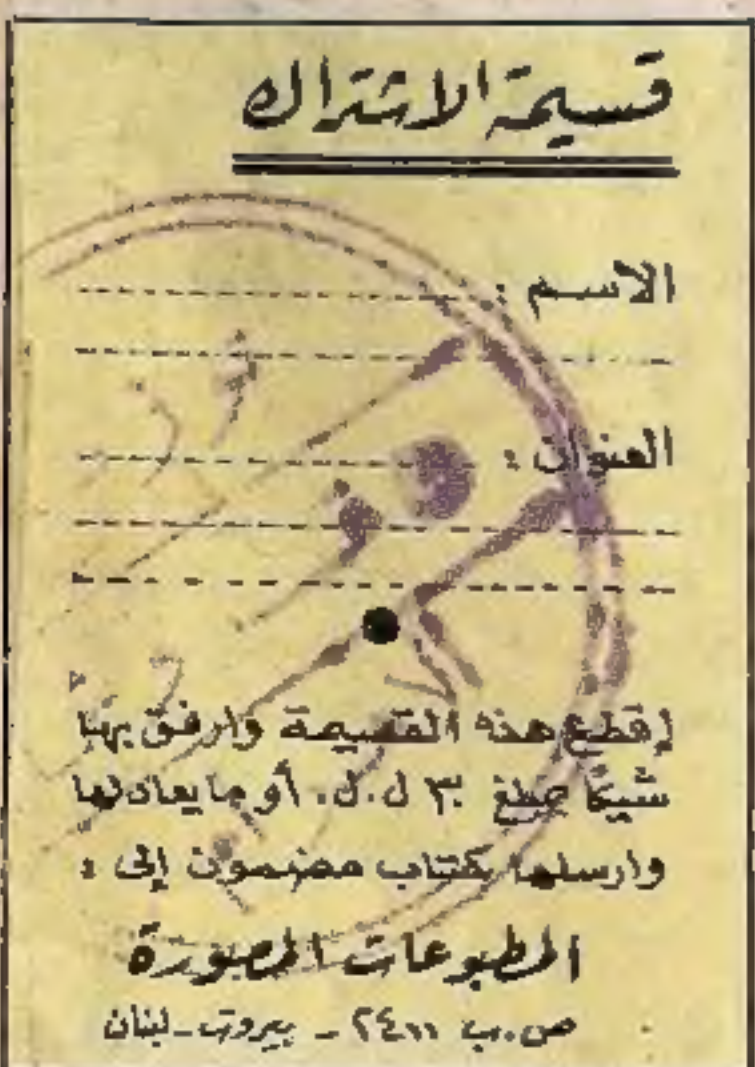 قسيمة الاشتراك
الاسم :
العنوان :
إقطع هذه القسيمة وارفق بها
شيكًا بمبلغ ٣٠ ل.ل. أو ما يعادلها
وارسلها بكتاب مضمون إلى :
المطبوعات المصورة
ص.ب - بيروت - لبنان